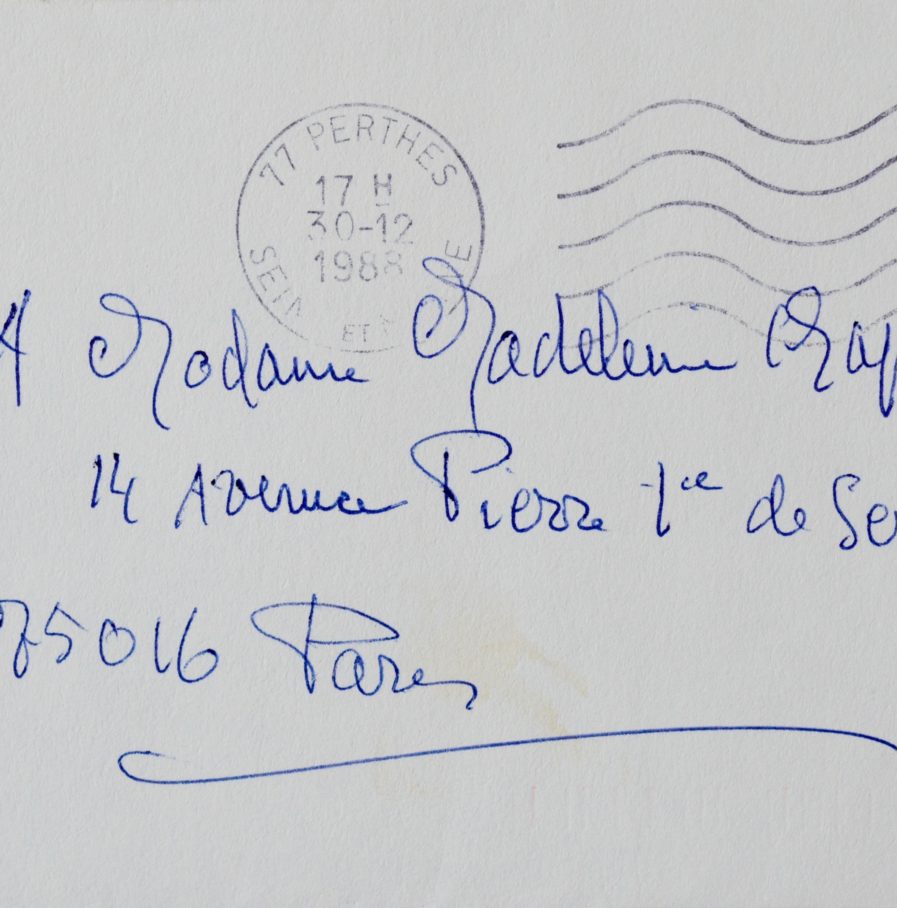 77 PERTHES
17 H
30-12
1988
SEINE ET
A Madame Madeleine
14 Avenue Pierre 1er de Se
75016 Paris